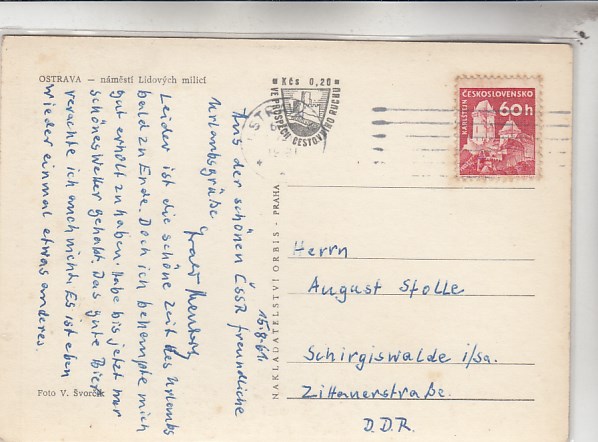 OSTRAVA — náměstí Lidových milicí
Kčs 0,20
VE PROSPĚCH CESTOVNÍHO RUCHU
ČESKOSLOVENSKO
60h
KARLŠTEJN
15.8.61.
Aus der schönen ČSSR freundliche
Urlaubsgrüße
Leider ist die schöne Zeit des Urlaubs
bald zu Ende. Doch ich behaupte mich
gut erholt zu haben. Habe bis jetzt nur
schönes Wetter gehabt. Das gute Bier
verachte ich auch nicht. Es ist eben
wieder einmal etwas anderes.
NAKLADATELSTVÍ ORBIS - PRAHA
Herrn
August Stolle
Schirgiswalde i/Sa.
Zittauerstraße.
D.D.R.
Foto V. Švorčík